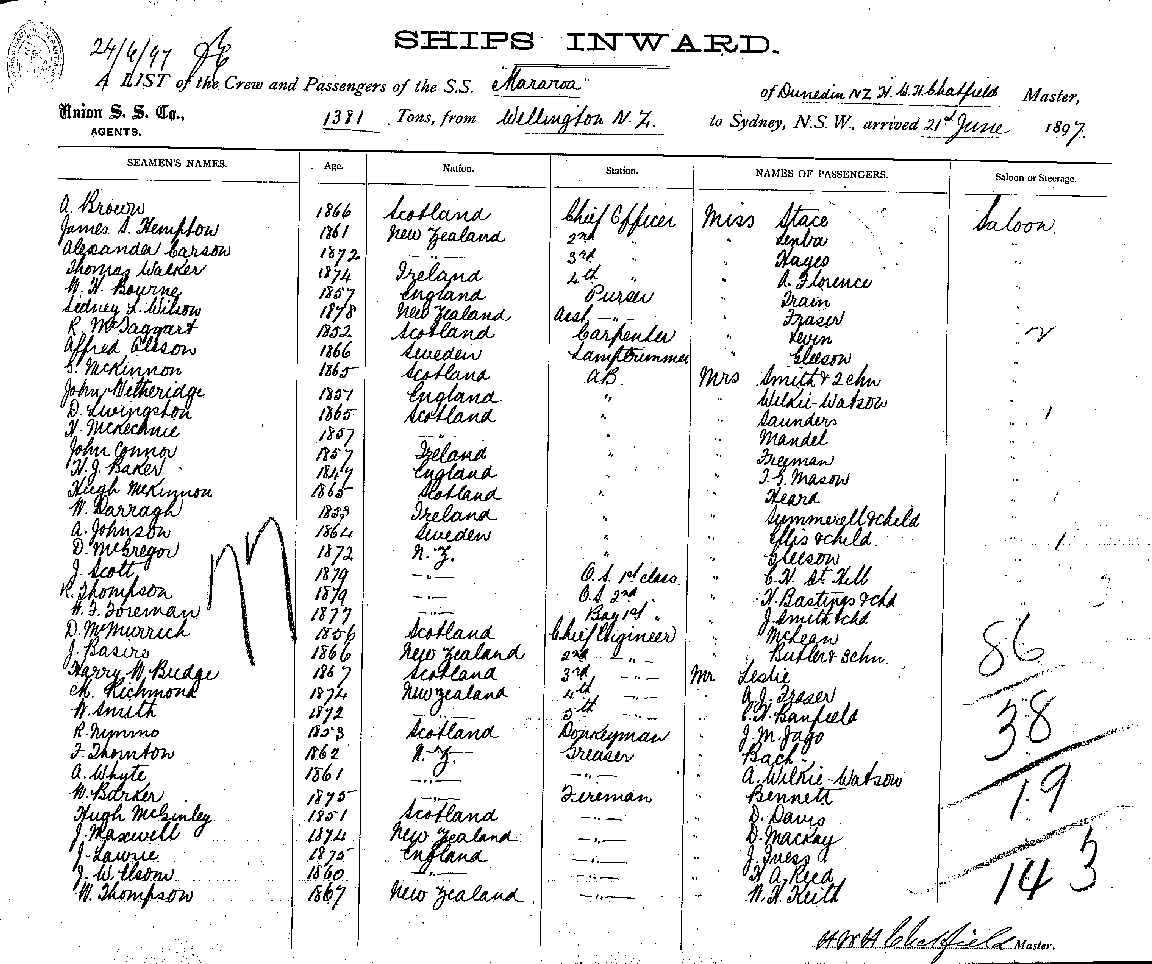 SHIPS INWARD.
24/6/97
A LIST of the Crew and Passengers of the S.S. "Mararoa" of Dunedin NZ H.W.H. Chatfield Master,
Union S. S. Co., AGENTS. 1381 Tons, from Wellington N.Z. to Sydney, N.S.W., arrived 21st June 1897.
SEAMEN'S NAMES. Age. Nation. Station. NAMES OF PASSENGERS. Saloon or Steerage.
A. Brown 1866 Scotland Chief Officer Miss Stace Saloon
James S. Hempton 1861 New Zealand 2nd "
Alexander Carson 1872 -"- 3rd " Hayes
Thomas Walker 1874 Ireland 4th " " A. Florence
W. H. Bourne 1857 England Purser " Train
Sidney L. Wilson 1878 New Zealand Asst -"- " Fraser
R. McTaggart 1852 Scotland Carpenter " Levin
Alfred Olsson 1866 Sweden Lamptrimmer " Gleeson
McKinnon 1865 Scotland AB. Mrs Smith & 2 chn
John Hetheridge 1857 England " " Wilkie-Watson
D. Livingston 1865 Scotland " " Saunders 1
H. McKechnie 1857 -"- " " Mandel
John Connor 1857 Ireland " " Freeman
H. J. Baker 1847 England " " T. G. Mason
Hugh McKinnon 1865 Scotland " " Heard
W. Darragh 1859 Ireland " " Summerell & child
A. Johnson 1864 Sweden " " Ellis & child 1
D. McGregor 1872 N.Z. " " Gleeson
J. Scott 1879 -"- O.S. 1st class " C. H. St Hill
R. Thompson 1879 -"- O.S. 2nd " " H. Bastings & chd
H. F. Foreman 1877 -"- Boy 1st " " J. Smith & chd
D. McMurrich 1856 Scotland Chief Engineer " McLean
J. Basire 1866 New Zealand 2nd -"- " Butler & 3 chn. 86
Harry W. Budge 1867 Scotland 3rd -"- Mr Leslie
M. Richmond 1874 New Zealand 4th -"- " A. J. Fraser
W. Smith 1872 -"- 5th -"- " C. H. Banfield 38
R. Nimmo 1853 Scotland Donkeyman " J. M. Jago
F. Thornton 1862 N.Z. Greaser " Bach
A. Whyte 1861 -"- -"- " A. Wilkie-Watson
W. Barker 1875 -"- Fireman " Bennett 19
Hugh McGinley 1851 Scotland -"- " D. Davis
J. Maxwell 1874 New Zealand -"- " D. Mackay
J. Lawrie 1875 England -"- " J. Tress
J. W. Elsom 1860 -"- -"- " H. A. Reed 143
W. Thompson 1867 New Zealand -"- " W. H. Keith
HWH Chatfield Master.